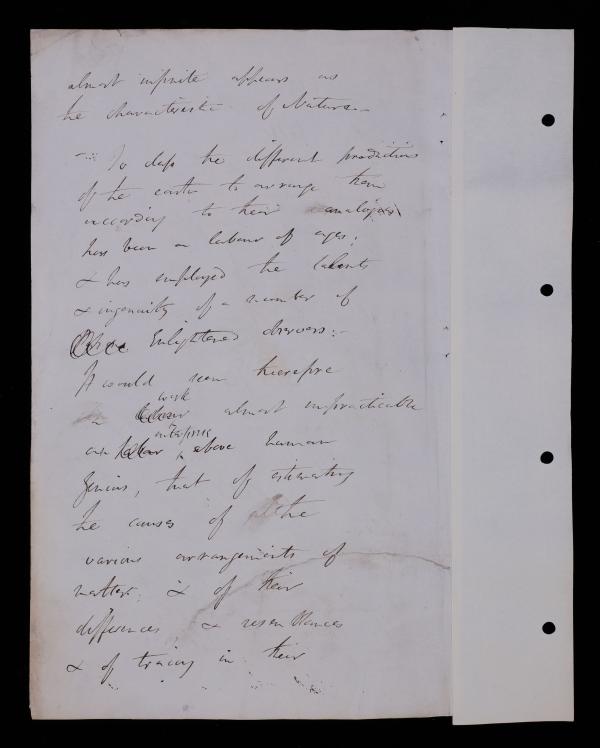 almost infinite appears as
the characteristic of Nature.—
— To class the different productions
of the earth to arrange them
according to their analogies
has been a labour of ages;
& has employed the talents
& ingenuity of a number of
Enlightened observers:—
It would seem therefore
work
an labour almost impracticable
enterprise
an labour above human
genius, that of estimating
the causes of all the
various arrangements of
matter, & of their
differences & resemblances
& of tracing in their